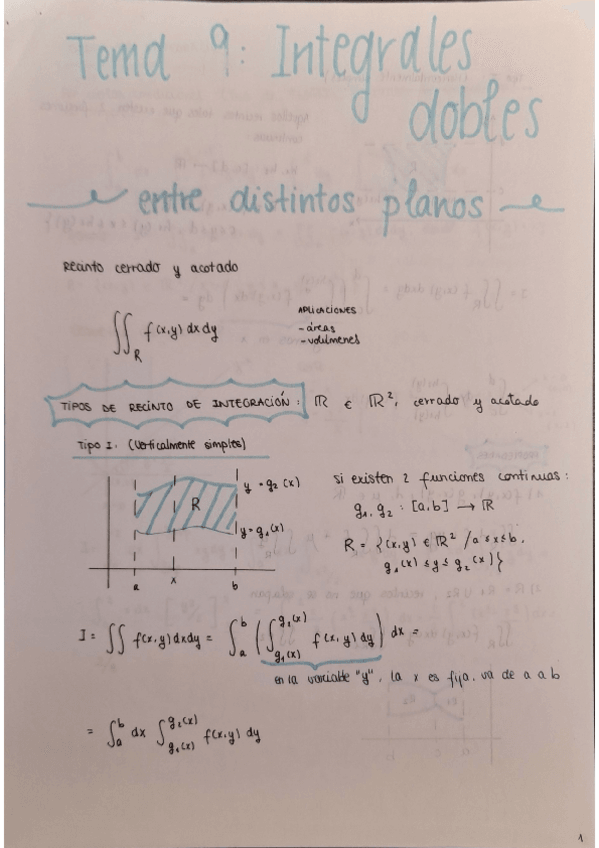 Tema 9: Integrales
dobles
entre distintos planos
Recinto cerrado y acotado
∬_R f(x,y) dx dy
APLICACIONES
- áreas
- volúmenes
TIPOS DE RECINTO DE INTEGRACIÓN: ℝ ∈ ℝ², cerrado y acotado
Tipo I. (Verticalmente simples)
y = g₂(x)
R
y = g₁(x)
a x b
si existen 2 funciones continuas:
g₁, g₂ : [a,b] → ℝ
R = {(x,y) ∈ ℝ² / a ≤ x ≤ b,
g₁(x) ≤ y ≤ g₂(x)}
I = ∬ f(x,y) dx dy = ∫_a^b (∫_{g₁(x)}^{g₂(x)} f(x,y) dy) dx =
en la variable "y", la x es fija, va de a a b
= ∫_a^b dx ∫_{g₁(x)}^{g₂(x)} f(x,y) dy
1